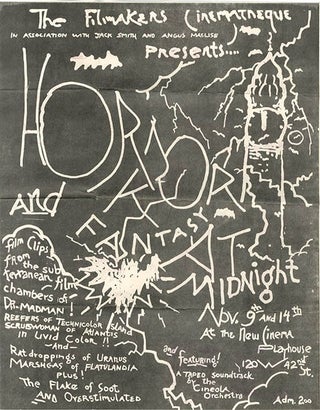 The Filmakers Cinematheque
IN ASSOCIATION WITH JACK SMITH AND ANGUS MACLISE
PRESENTS....
HORROR
And
FANTASY
AT
Midnight
film clips
from the sub
terranean film
chambers of
DR. MADMAN!
REEFERS OF TECHNICOLOR ISLAND
SCRUBWOMAN OF ATLANTIS
in Livid Color!!
—And—
Rat droppings of URANUS
MARSHGAS of FLATULANDIA
PLUS!
The Flake of Soot
AND OVERSTIMULATED
Nov. 9th and 14th
At the New Cinema
Playhouse
120 W 42nd
St.
and featuring!
A TAPED soundtrack
by the
Cineola
Orchestra
Adm. 2.00